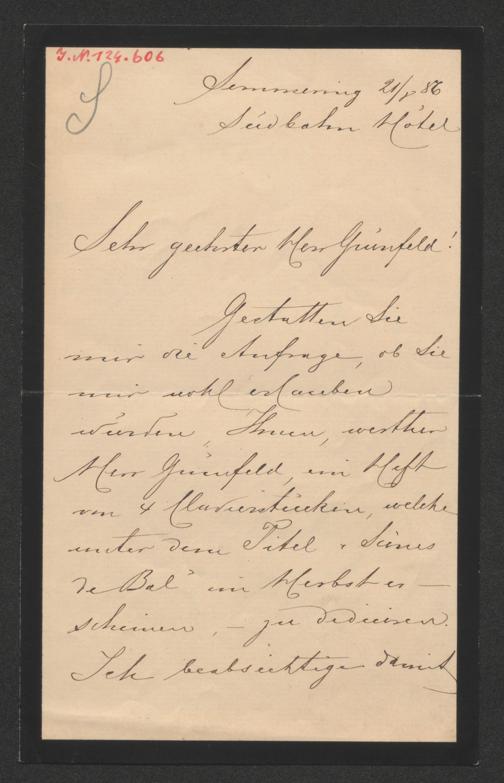 J.N. 124.606
S
Semmering 21/8 86
Südbahn Hôtel
Sehr geehrter Herr Grünfeld!
Gestatten Sie
mir die Anfrage, ob Sie
mir wohl erlauben
würden, Ihnen, werther
Herr Grünfeld, ein Heft
von 4 Clavierstücken, welche
unter dem Titel "Scènes
de Bal" im Herbst er-
scheinen, - zu dediciren.
Ich beabsichtige damit